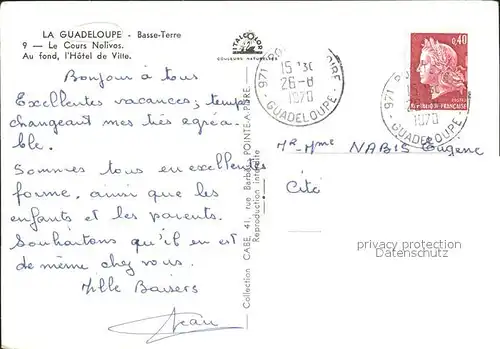 LA GUADELOUPE - Basse-Terre
9 — Le Cours Nolivos.
Au fond, l'Hôtel de Ville.
ITALCOLOR
COULEURS NATURELLES
Bonjour à tous
Excellentes vacances, temps
changeant mes très agréa-
ble.
Sommes tous en excellentes
forme, ainsi que les
enfants et les parents.
Souhaitons qu'il en est
de même chez vous.
Mille Baisers
Jean
Collection CABE, 41, rue Barbès, POINTE-A-PITRE
Reproduction interdite
971
15 H 30
26-8
1970
GUADELOUPE
0,40
REPUBLIQUE FRANÇAISE
971
1970
GUADELOUPE
Mr Mme NABIS Eugene
Cité
copyright protection
Datenschutz